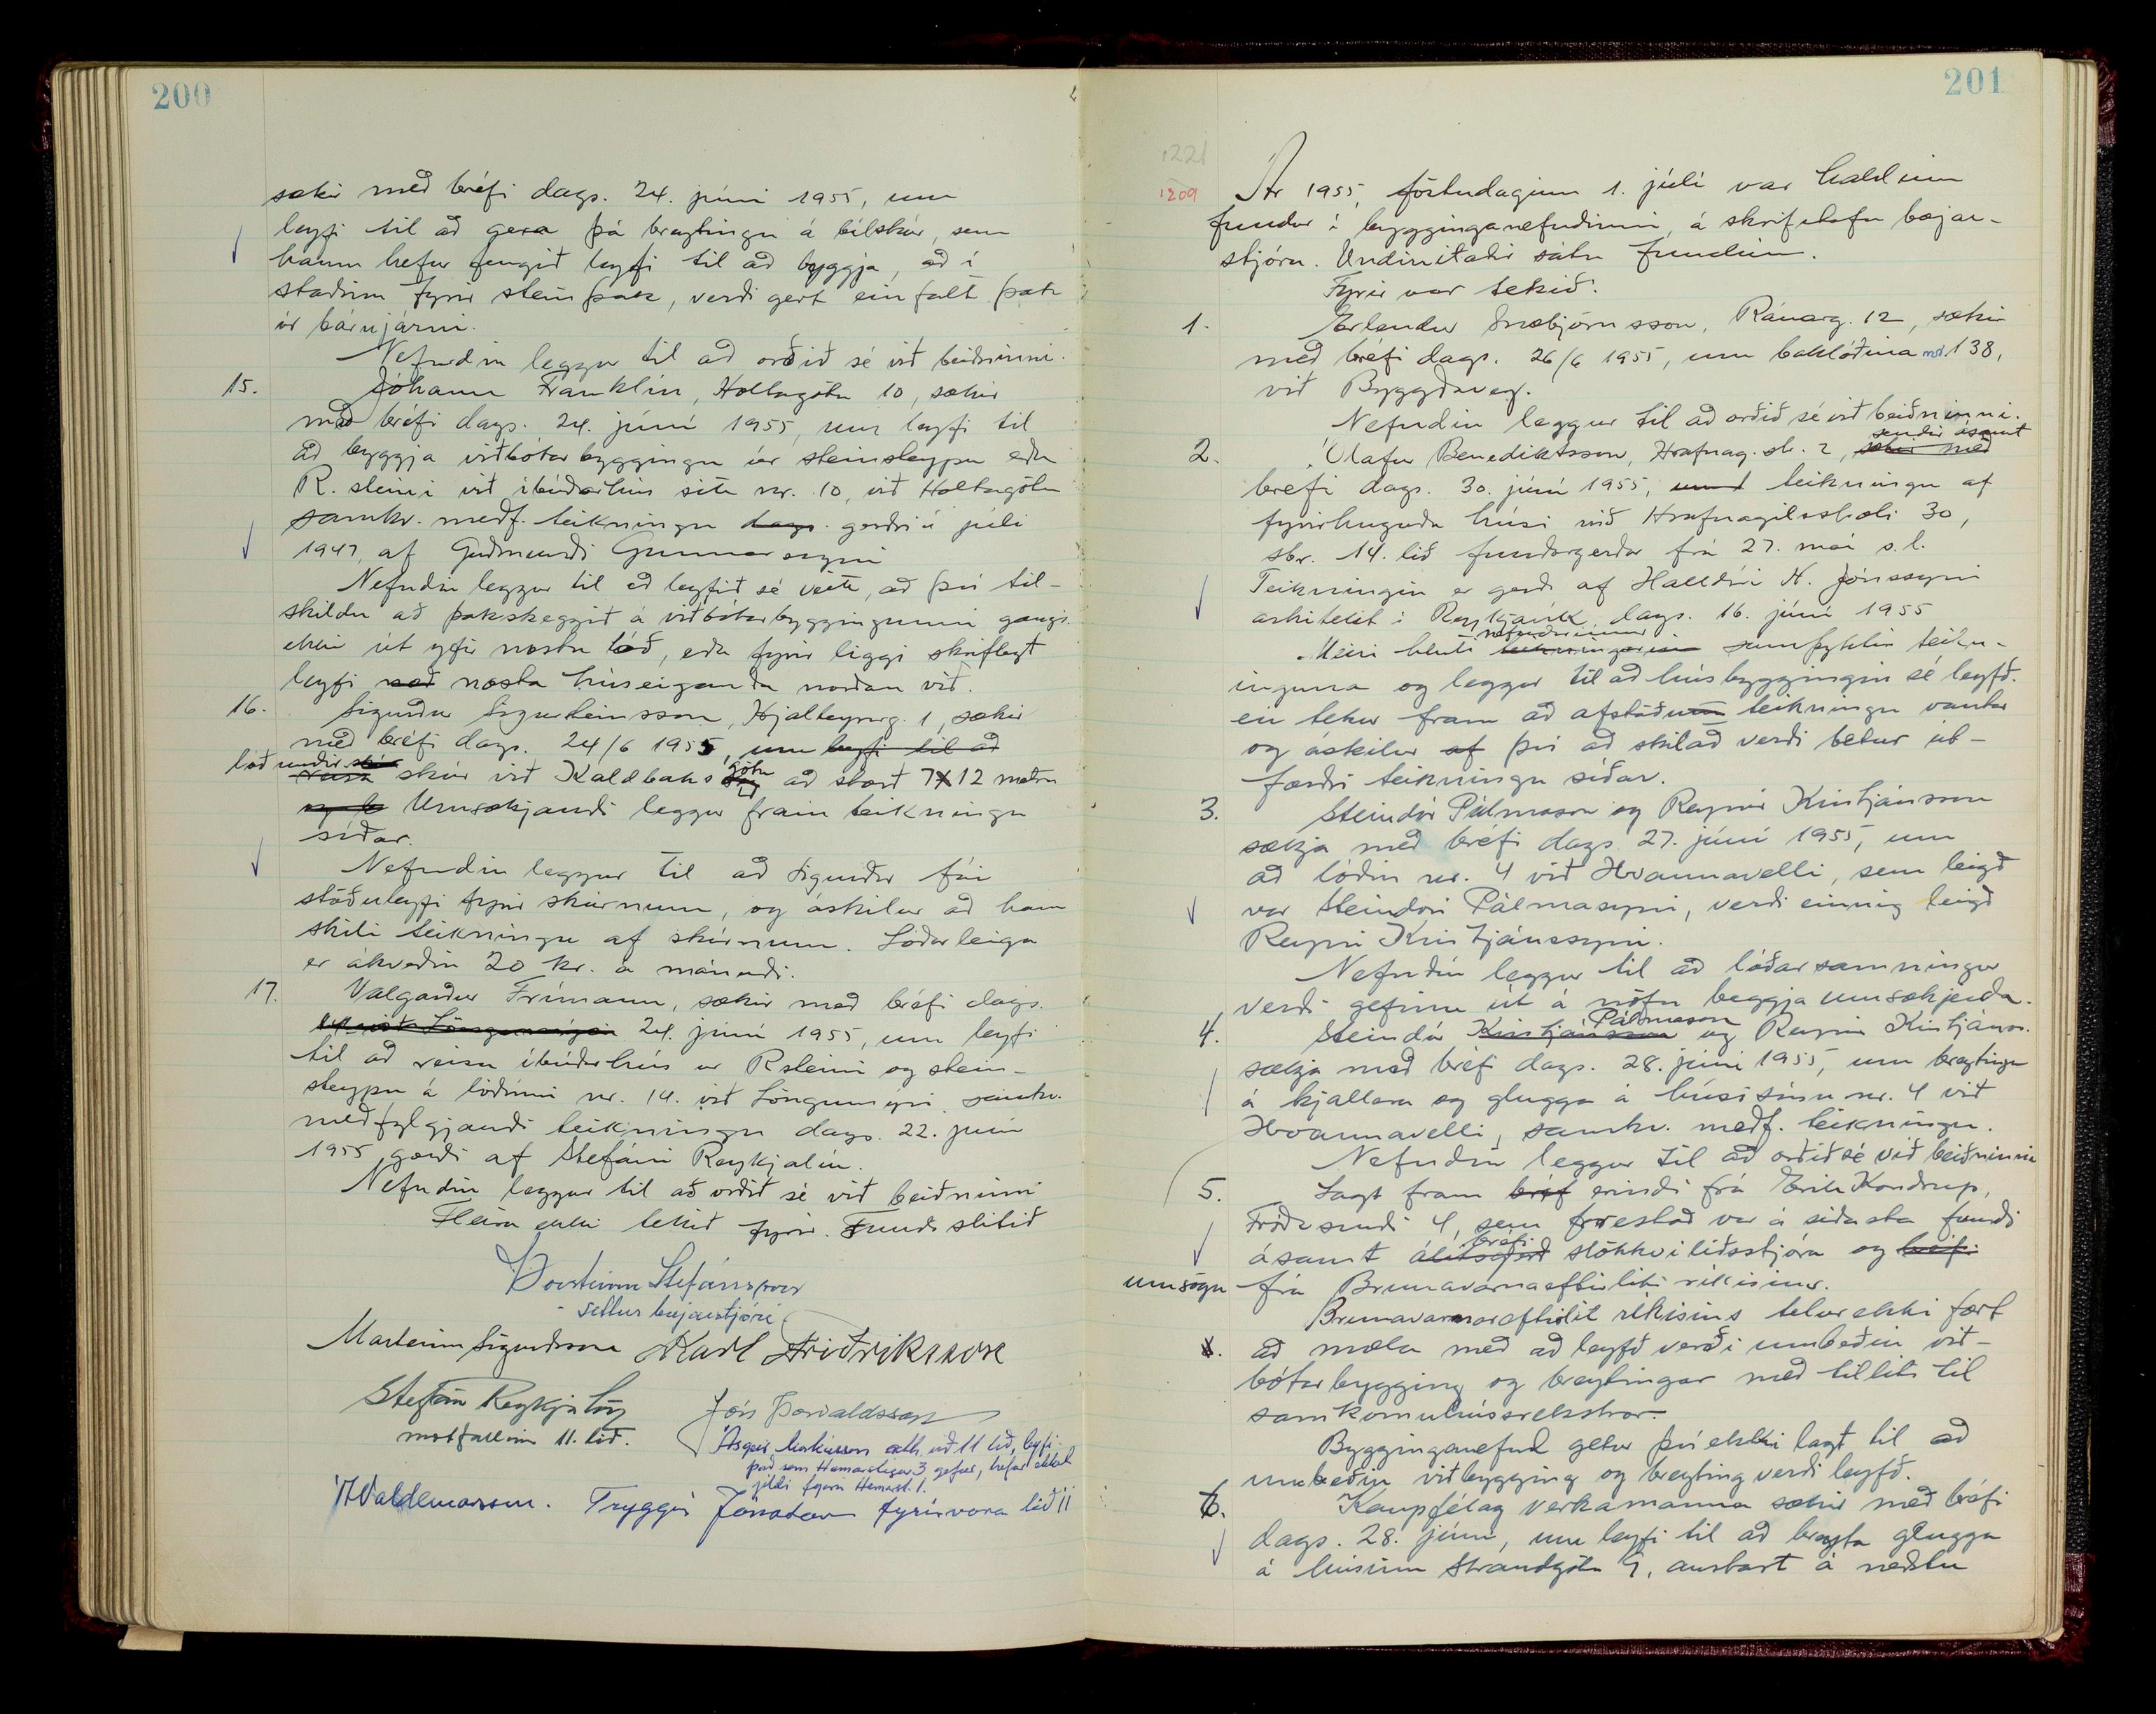 200
sækir með bréfi dags. 24. júní 1955, um
leyfi til að gera þá breytingu á bílskúr, sem
hann hefur fengið leyfi til að byggja, að í
staðinn fyrir steinþak, verði gert einfalt þak
úr bárujárni.
Nefndin leggur til að orðið sé við beiðninni.
15. Jóhann Franklín, Holtagötu 10, sækir
með bréfi dags. 24. júní 1955, um leyfi til
að byggja viðbótarbyggingu úr steinsteypu eða
R. steini við íbúðarhús sitt nr. 10, við Holtagötu
samkv. meðf. teikningu dags. gerðri í júlí
1947, af Guðmundi Gunnarssyni
Nefndin leggur til að leyfið sé veitt, að því til-
skildu að þakskeggið á viðbótarbyggingunni gangi
ekki út yfir næstu lóð, eða fyrir liggi skriflegt
leyfi næsta húseiganda norðan við.
16. Sigurður Sigursteinsson, Hjalteyrarg. 1, sækir
með bréfi dags. 24/6 1955, um leyfi til að
lóð undir skúr
reisa skúr við Kaldbaksgötu að stærð 7x12 metra
Umsækjandi leggur fram teikningu
síðar.
Nefndin leggur til að Sigurður fái
stöðuleyfi fyrir skúrnum, og áskilur að hann
skili teikningu af skúrnum. Lóðarleiga
er ákveðin 20 kr. á mánuði.
17. Valgarður Frímann, sækir með bréfi dags.
24. júní 1955, um leyfi
til að reisa íbúðarhús úr Rsteini og stein-
steypu á lóðinni nr. 14. við Löngumýri samkv.
meðfylgjandi teikningu dags. 22. júní
1955 gerði af Stefáni Reykjalín.
Nefndin leggur til að orðið sé við beiðninni
Fleira ekki tekið fyrir. Fundi slitið
Þorsteinn Stefánsson
settur bæjarstjóri
Marteinn Sigurðsson Karl Friðriksson
Stefán Reykjalín
mótfallinn 11. lið.
Jón Þorvaldsson
Ásgeir Markússon ath. við 11 lið, leyfi
það sem Hamarstígur 3 gefur, hefur ekkert
gildi fyrir Hamarst. 1.
Valdemarsson. Tryggvi Jónatans fyrirvara lið 11
201
1221
1209
Ár 1955, föstudaginn 1. júlí var haldinn
fundur í bygginganefndinni, á skrifstofu bæjar-
stjóra. Undirritaðir sátu fundinn.
Fyrir var tekið:
1. Erlendur Snæbjörnsson, Ránarg. 12, sækir
með bréfi dags. 26/6 1955, um baklóðina nr. 138,
við Byggðaveg.
Nefndin leggur til að orðið sé við beiðninni.
sendir ásamt
2. Ólafur Benediktsson, Hrafnag.str. 2, sækir með
bréfi dags. 30. júní 1955, teikningu af
fyrirhuguðu húsi við Hrafnagilsstræti 30,
sbr. 14. lið fundargerðar frá 27. maí s.l.
Teikningin er gerð af Halldóri H. Jónssyni
arkitekt í Reykjavík, dags. 16. júní 1955
nefndarinnar
Meiri hluti samþykkir teikn-
inguna og leggur til að húsbyggingin sé leyfð.
en tekur fram að afstöðu teikningu vantar
og áskilur af því að skilað verði betur út-
færðri teikningu síðar.
3. Steindór Pálmason og Reynir Kristjánsson
sækja með bréfi dags. 27. júní 1955, um
að lóðin nr. 4 við Hvannavelli, sem leigð
var Steindóri Pálmasyni, verði einnig leigð
Reyni Kristjánssyni.
Nefndin leggur til að lóðarsamningur
verði gefinn út á nöfn beggja umsækjenda.
Pálmason
4. Steindór Kristjánsson og Reynir Kristjánss.
sækja með bréfi dags. 28. júní 1955, um breytingu
á kjallara og glugga á húsi sínu nr. 4 við
Hvannavelli, samkv. meðf. teikningu.
Nefndin leggur til að orðið sé við beiðninni
5. Lagt fram bréf erindi frá Erik Kondrup,
Fróðasundi 4, sem frestað var á síðasta fundi
bréfi
ásamt álitsgerð slökkviliðsstjóra og bréfi
umsögn frá Brunavarnaeftirliti ríkisins.
Brunavarnaeftirlit ríkisins telur ekki fært
að mæla með að leyfð verði umbeðin við-
bótarbygging og breytingar með tilliti til
samkomuhússrekstrar.
Bygginganefnd getur því ekki lagt til að
umbeðin viðbygging og breyting verði leyfð.
6. Kaupfélag verkamanna sækir með bréfi
dags. 28. júní, um leyfi til að breyta glugga
á húsinu Strandgötu 9, austast á neðstu